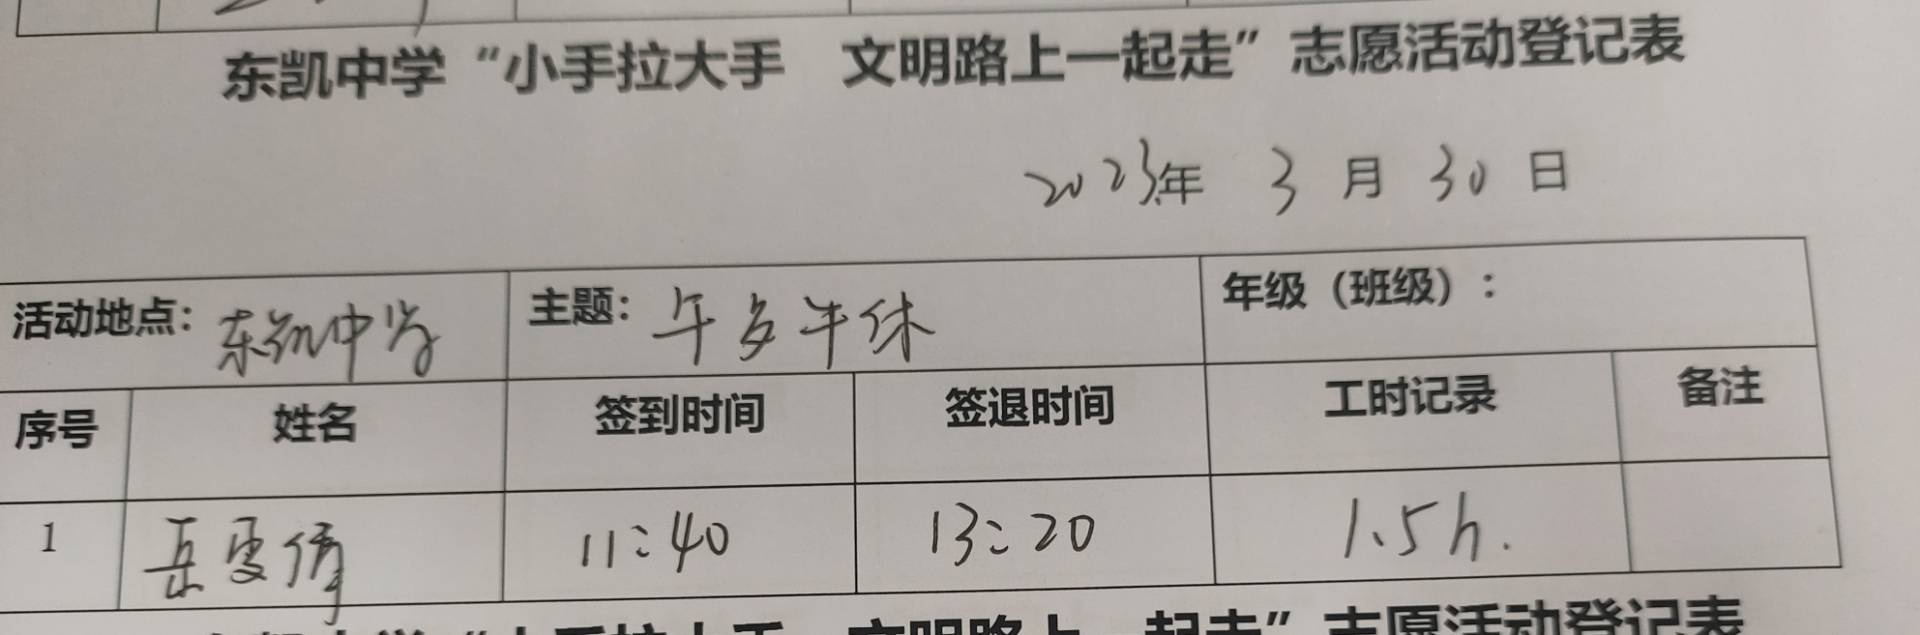 东凯中学“小手拉大手 文明路上一起走”志愿活动登记表
2023年 3 月 30 日
活动地点：东凯中学 主题：午多午休 年级（班级）：
序号 姓名 签到时间 签退时间 工时记录 备注
1 岳雯倩 11:40 13:20 1.5h.
东凯中学“小手拉大手 文明路上一起走”志愿活动登记表